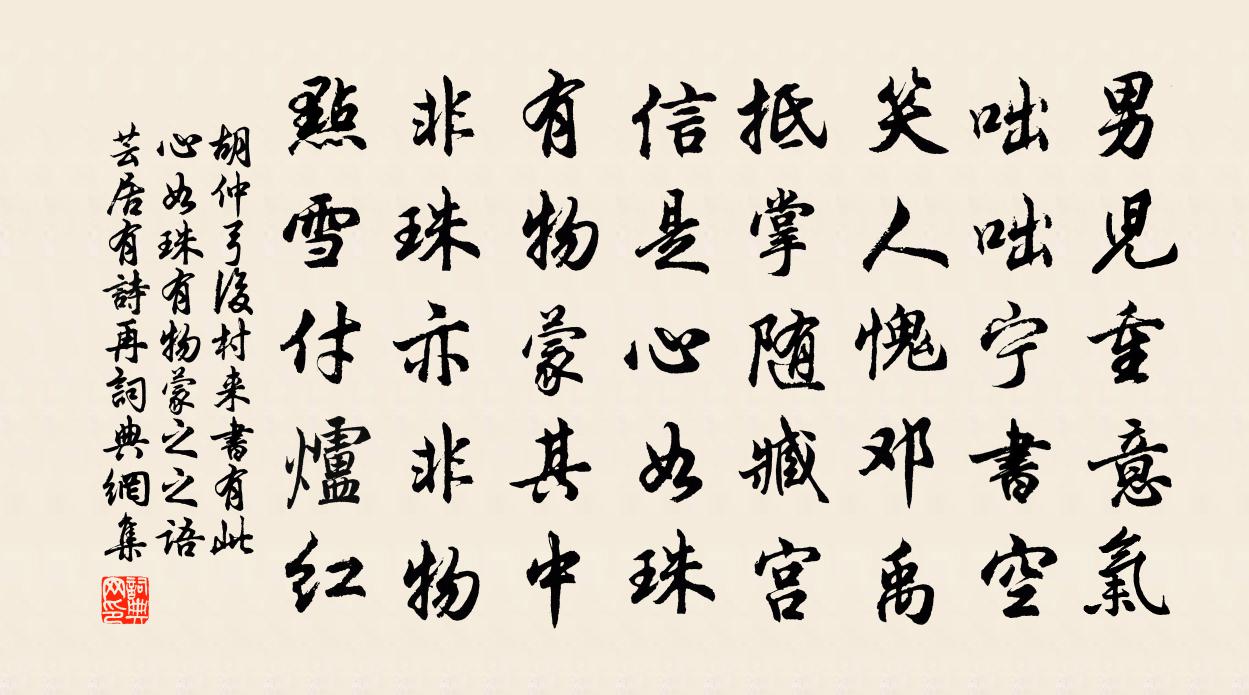 男児重意氣
咄咄宁書空
笑人愧邓禹
抵掌随臧宫
信是心如珠
有物蒙其中
非珠亦非物
點雪付爐红
胡仲弓後村来書有此
心如珠有物蒙之之语
芸居有詩再詞典網集
詞典网印